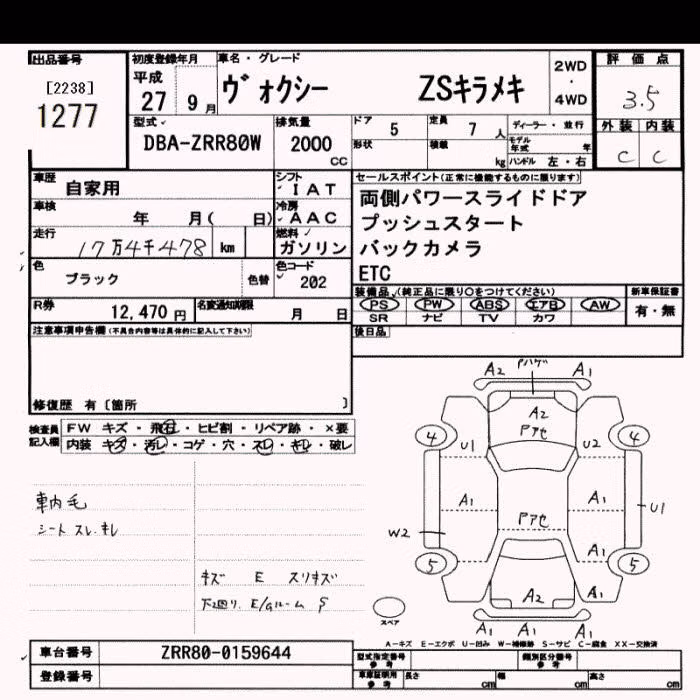 出品番号
[2238]
1277
初度登録年月
平成
27 9月
車名・グレード
ヴォクシー ZSキラメキ
2WD
・
4WD
評価点
3.5
外装 内装
C C
型式
DBA-ZRR80W
排気量
2000
CC
ドア 5
定員 7 人
ディーラー・並行
形状
積載 kg
モデル年式 年
ハンドル 左・右
車歴 自家用
シフト
IAT
車検 年 月( 日)
冷房
AAC
走行 17万4千478 km
燃料
ガソリン
色 ブラック 色替
色コード
202
R券 12,470円
名変通知期限 月 日
セールスポイント(正常に機能するものに限ります)
両側パワースライドドア
プッシュスタート
バックカメラ
ETC
装備品(純正品に限り〇をつけてください)
新車保証書
PS PW ABS エアB AW
有・無
SR ナビ TV カワ
後日品
注意事項申告欄(不具合内容等は具体的に記入して下さい)
修復歴 有〔箇所 〕
検査員記入欄
FW キズ・飛石・ヒビ割・リペア跡・×要
内装 キズ・汚レ・コゲ・穴・スレ・キレ・破レ
車内毛
シート スレ.キレ
キズ E スリキズ
下廻り.E/Gルーム S
A2 Pハゲ A1
A2
Pアセ
4 4
U1 U2
A1 A1
Pアセ
U1
W2
A1
5 5
A2 A1
A1 A1 A1
スペア
A-キズ E-エクボ U-凹み W-補修跡 S-サビ C-腐食 XX-交換済
車台番号 ZRR80-0159644
登録番号
型式指定番号 参考
類別区分番号 参考
車庫証明用 参考
長さ cm
幅 cm
高さ cm